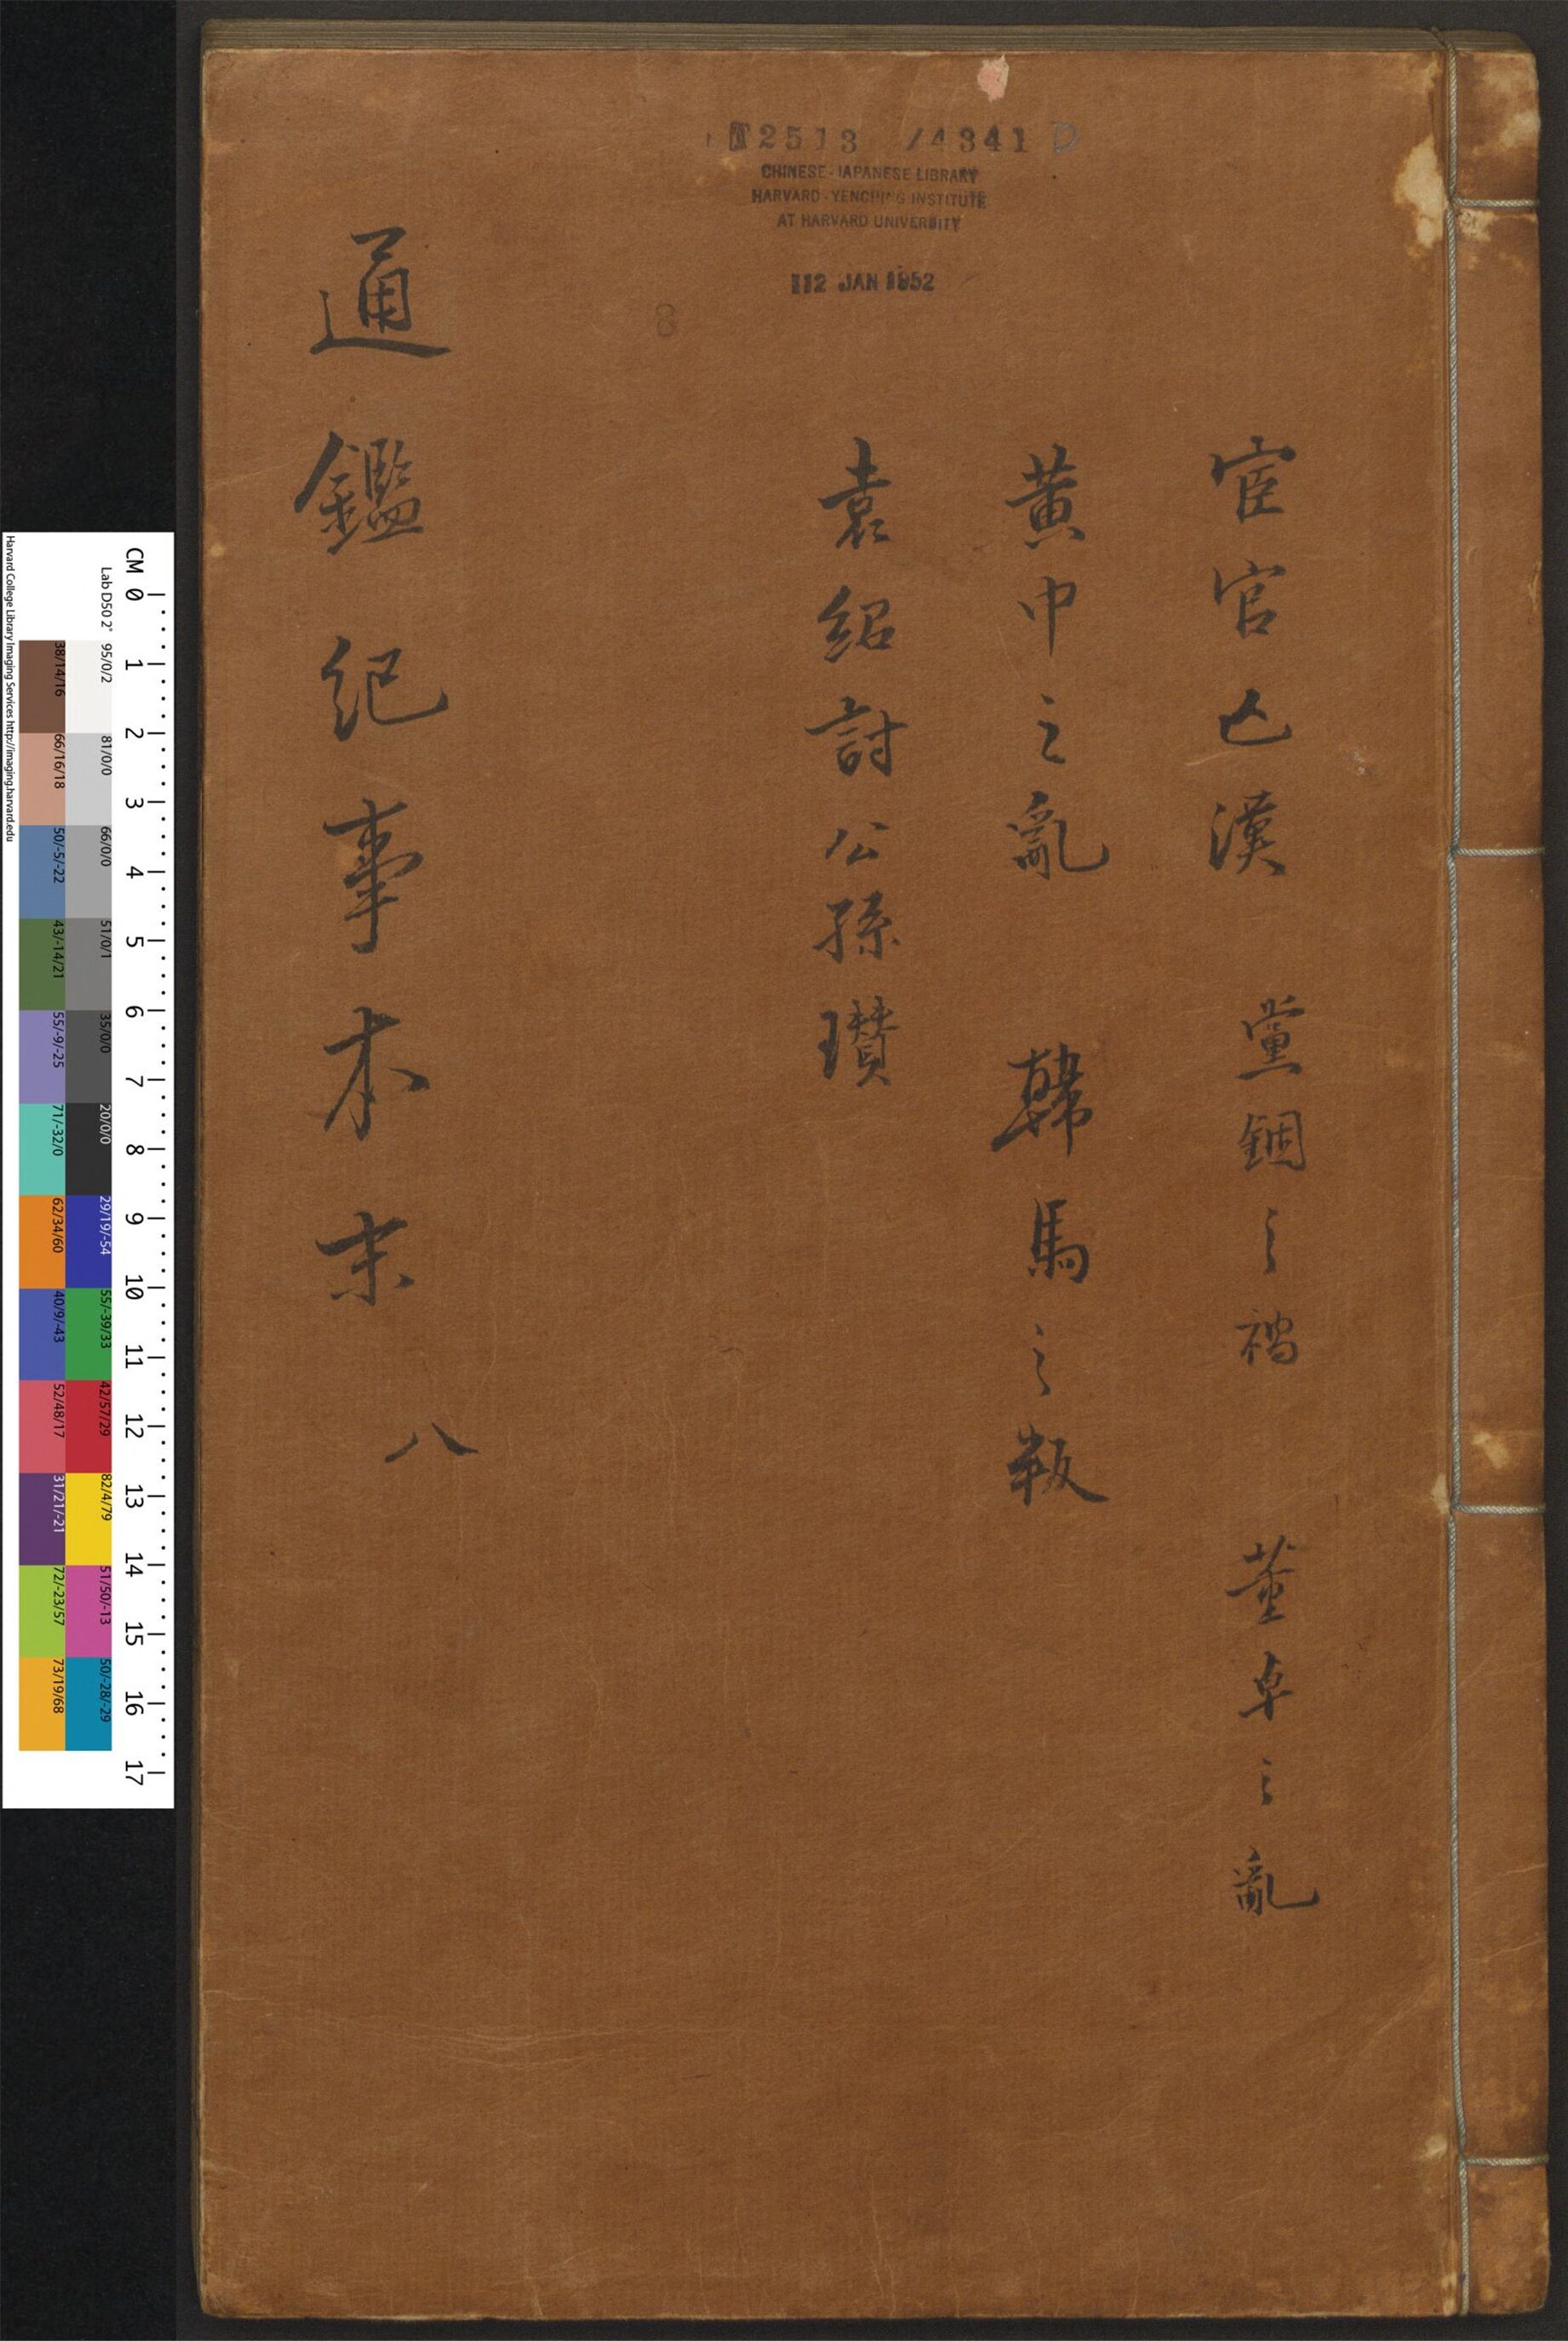 宦官亡漢　黨錮之禍　董卓之亂
黄巾之亂　韓馬之叛
袁紹討公孫瓚
通鑑紀事本末　八
T2513 /4341 D
CHINESE-JAPANESE LIBRARY
HARVARD-YENCHING INSTITUTE
AT HARVARD UNIVERSITY
12 JAN 1952
8
CM 0 1 2 3 4 5 6 7 8 9 10 11 12 13 14 15 16 17
Lab D50 2° 95/0/2 81/0/0 66/0/0 51/0/1 35/0/0 20/0/0 29/19/-54 55/-39/33 42/57/29 82/4/79 51/50/-13 50/-28/-29
38/14/16 66/16/18 50/-5/-22 43/-14/21 55/-9/-25 71/-32/0 62/34/60 40/9/-43 52/48/17 31/21/-21 72/-23/57 73/19/68
Harvard College Library Imaging Services http://imaging.harvard.edu